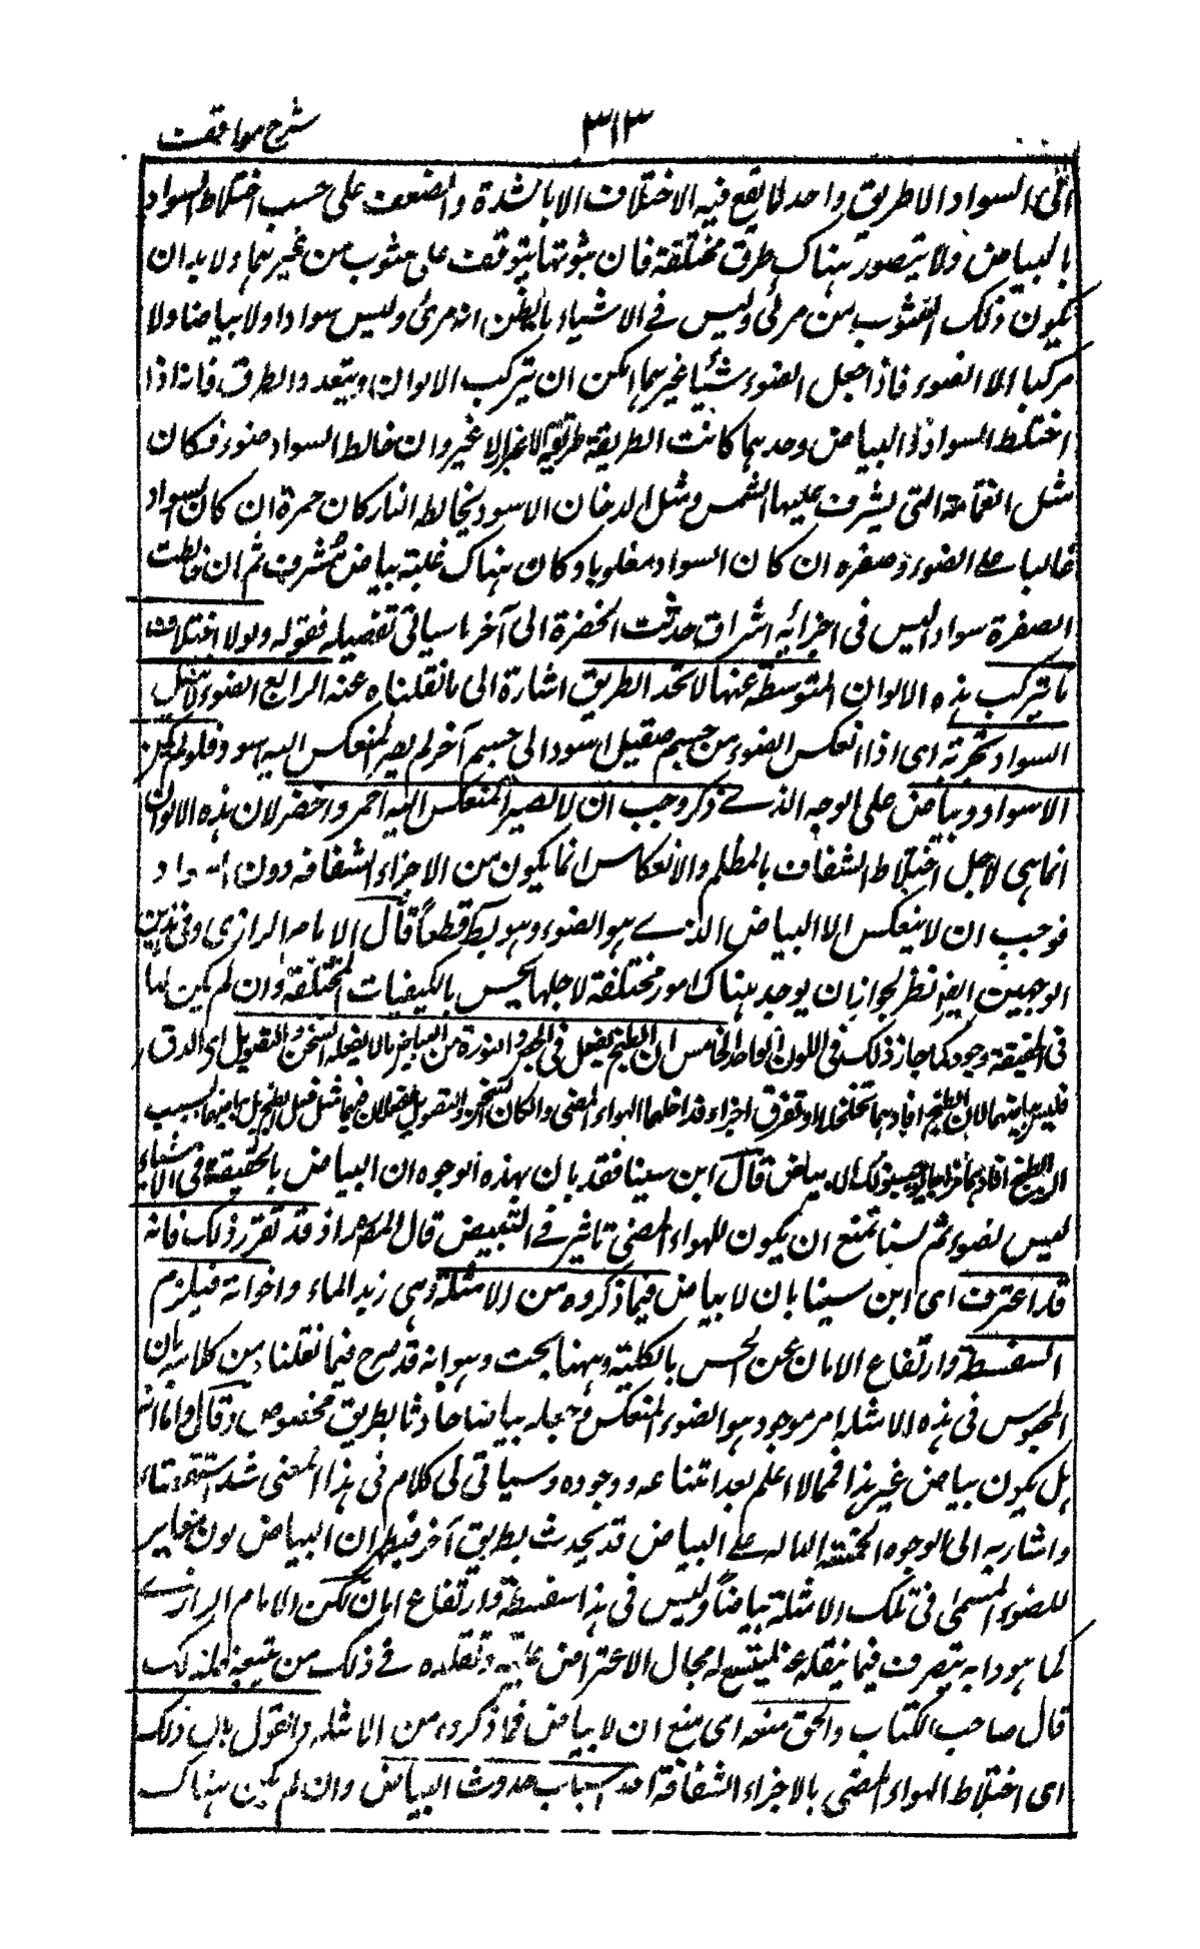 شرح مواقف
٣١٣
الى السواد الا طريق واحد لا يقع فيه الاختلاف الا بالشدة والضعف على حسب اختلاط السواد
بالبياض ولا يتصور هناك طرق مختلفة فان ثبوتها يتوقف على شوب من غيرهما ولا بد ان
يكون ذلك الشوب من مرئى وليس فى الاشياء ما يظن انه مرئى وليس سوادا ولا بياضا ولا
مركبا الا الضوء فاذا جعل الضوء شيئا غيرهما امكن ان يتركب الالوان ويتعدد الطرق فانه اذا
اختلط السواد و البياض وحدهما كانت الطريقة طريقة الاغبرار لا غير وان خالط السواد ضوء فكان
مثل الغمامة التى يشرق عليها الشمس ومثل الدخان الاسود يخالطه النار كان حمرة ان كان السواد
غالبا على الضوء وصفرة ان كان السواد مغلوبا وكان هناك غلبة بياض مشرق ثم ان خالطت
الصفرة سوادا ليس فى اجزائه اشراق حدثت الخضرة الى آخر ما سياتى تفصيله فقوله ولولا اختلاف
ما تتركب هذه الالوان المتوسطة عنها لاتحد الطريق اشارة الى ما نقلناه عنه الرابع الضوء لا يقبل
السواد تجربة اى اذا انعكس الضوء من جسم صقيل اسود الى جسم آخر لم يصر المنعكس اليه اسود فلو لم يكن
الا سواد وبياض على الوجه الذى ذكر وجب ان لا يصير المنعكس اليه احمر واخضر لان هذه الالوان
انما هى لاجل اختلاط الشفاف بالمظلم والانعكاس انما يكون من الاجزاء الشفافه دون السواد
فوجب ان لا ينعكس الا البياض الذى هو الضوء وهو بط قطعا قال الامام الرازى وفى هذين
الوجهين ايضا نظر لجواز ان يوجد هناك امور مختلفة لاجلها يحس بالكيفيات المختلفة وان لم يكن لها
فى الحقيقة وجود كما جاز ذلك فى اللون الواحد الخامس ان الطبخ يفعل فى الجص والنورة من البياض ما لا يفعله السحق و التصويل اى الدق
فليس بياضهما لان الطبخ افادهما تخلخلا وتفرق اجزاء فداخلها الهواء المضئ والا كان السحق والتصويل يفعلان فيهما مثل فعل الطبخ بل بياضهما بسبب
ان الطبخ افادهما مزاجا يوجب ذلك البياض قال ابن سينا فقد بان بهذه الوجوه ان البياض بالحقيقة فى الاشياء
ليس لضوء ثم لسنا نمنع ان يكون للهواء المضئ تاثير فى التبييض قال المصراذ قد تقرر ذلك فانه
قد اعترف اى ابن سينا بان لا بياض فيما ذكروه من الامثلة وهى زبد الماء واخواته فيلزم
السفسطة وارتفاع الامان عن الحس بالكلية وههنا بحث وهو انه قد صرح فيما نقلناه من كلامه بان
المحسوس فى هذه الامثلة امر موجود هو الضوء المنعكس وجعله بياضا حادثا بطريق مخصوص وقال واما انه
هل يكون بياض غير هذا فمما لا اعلم بعد امتناعه ووجوده وسياتى لى كلام فى هذا المعنى اشد استقصاء
واشار به الى الوجوه الخمسة الدالة على البياض قد يحدث بطريق آخر فيظهر ان البياض لون مغاير
للضوء المسمى فى تلك الامثلة بياضا وليس فى هذا سفسطة وارتفاع امان لكن الامام الرازى
لما هو دابه يتصرف فيما ينقله عنه ليتسع له مجال الاعتراض عليه وقلده فى ذلك من تبعه فلذلك
قال صاحب الكتاب والحق منعه اى منع ان لا بياض فيما ذكروه من الامثلة والقول بان ذلك
اى اختلاط الهواء المضئ بالاجزاء الشفافة احد اسباب حدوث البياض وان لم يكن هناك